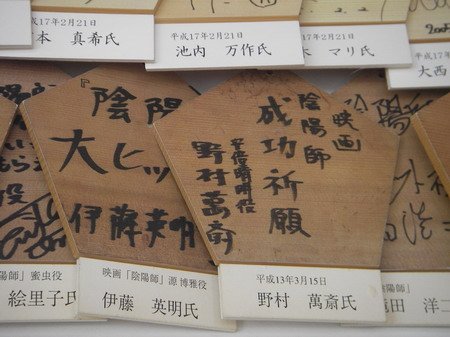 平成17年2月21日
本 真希氏
平成17年2月21日
池内 万作氏
17年2月21日
マリ氏
平成17年
大西
『陰陽
大ヒッ
伊藤英明
映画「陰陽師」源 博雅役
伊藤 英明氏
映画
陰陽師
成功祈願
安倍晴明役
野村萬斎
平成13年3月15日
野村 萬斎氏
陽師」蜜虫役
絵里子氏
陰陽師」
滝田 洋二